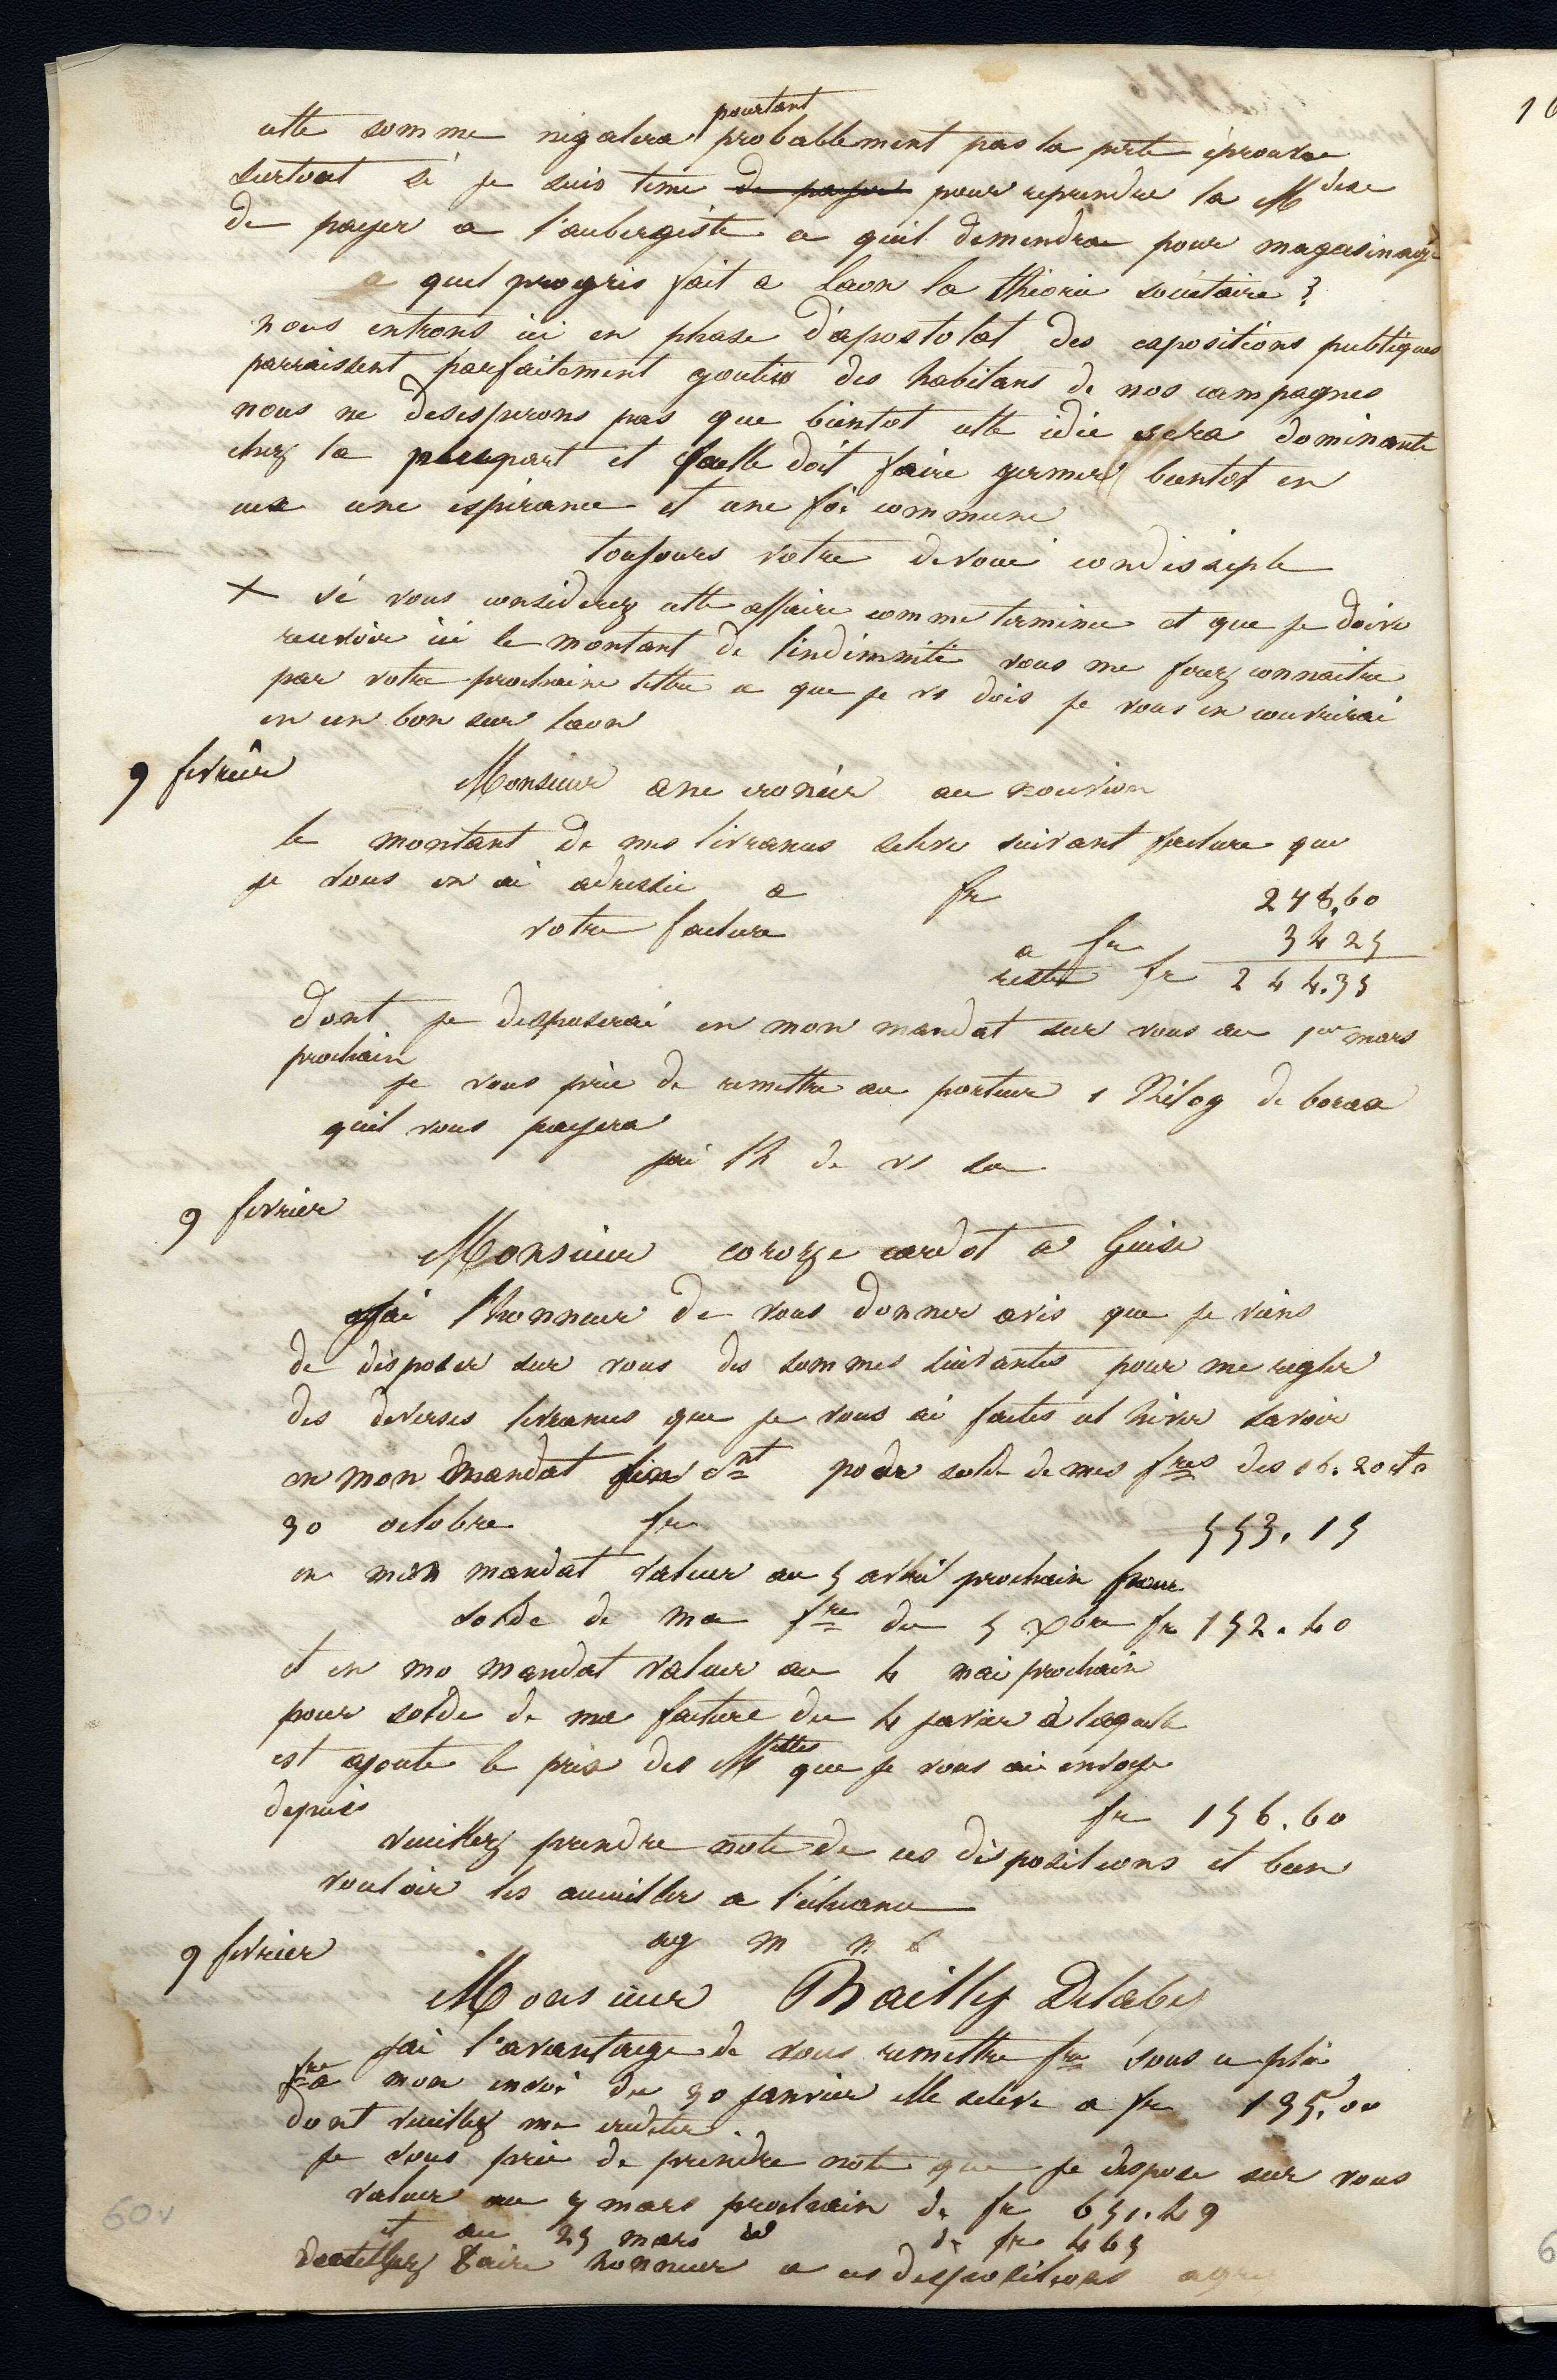 pourtant
cette somme négalera probablement pas la perte éprouvée
surtout si je suis tenu de payer pour reprendre la Mdise
de payer a l'aubergiste ce quil demendra pour magasinage
quel progrès fait a Laon la théorie sociétaire ?
nous entrons ici en phase d'apostolat des expositions publiques
parraissent parfaitement goutées des habitans de nos campagnes
nous ne desesperons pas que bientot cette idée sera dominante
chez la pluspart et quelle doit faire germer bientot en
eux une espérance et une foi commune
toujours votre devoué condisciple
+ si vous considerez cette affaire comme terminée et que je doive
recevoir ici le montant de l'indemnité vous me ferez connaitre
par votre prochaine lettre ce que je vs dois je vous en couvrirai
en un bon sur Laon
9 fevrier
Monsieur au nouvion
le montant de mes livrances seleve suivant facture que
je vous en ai adressée a fr 278,60
votre facture a fr 34 25
reste fr 244.35
dont je disposerai en mon mandat sur vous au 1er mars
prochain
je vous prie de remettre au porteur 1 Kilog de borax
quil vous payera
jai lh de vs sa
9 fevrier
Monsieur coroze cardot a Guise
Jai l'honneur de vous donner avis que je viens
de disposer sur vous des sommes suivantes pour me regler
des diverses livrances que je vous ai faites cet hiver savoir
en mon mandat fin ct pour solde de mes fres des 16. 20 et
30 octobre fr 553.15
en mon mandat valeur au 5 avril prochain pour
solde de ma fre du 5 xbre fr 152.40
et en mo mandat valeur au 4 mai prochain
pour solde de ma facture du 4 javier à laquelle
est ajoute le prix des Mlles que je vous ai envoye
depuis fr 156.60
veuillez prendre note de ces dispositions et bien
vouloir les accueiller a l'écheance
ag m
9 fevrier
Monsieur Bailly Delabey
jai l'avantage de vous remettre fre sous ce pli
fre a mon envoi du 30 janvier elle seleve a fr 195,00
dont veuillez me crediter
je vous prie de prendre note que je dispose sur vous
valeur au 5 mars prochain de fr 651.49
et au 25 mars de fr 465
veuillez faire honneur a ces dispositions
60v